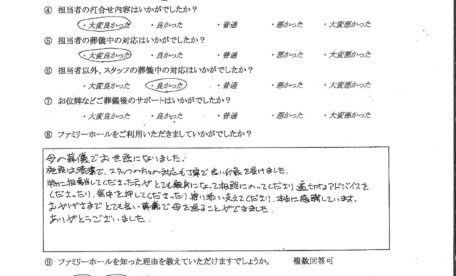 ④ 担当者の打合せ内容はいかがでしたか？
・大変良かった ・良かった ・普通 ・悪かった ・大変悪かった
⑤ 担当者の葬儀中の対応はいかがでしたか？
・大変良かった ・良かった ・普通 ・悪かった ・大変悪かった
⑥ 担当者以外、スタッフの葬儀中の対応はいかがでしたか？
・大変良かった ・良かった ・普通 ・悪かった ・大変悪かった
⑦ お位牌などご葬儀後のサポートはいかがでしたか？
・大変良かった ・良かった ・普通 ・悪かった ・大変悪かった
⑧ ファミリーホールをご利用いただきましていかがでしたか？
母の葬儀でお世話になりました。
施設は清潔で、スタッフの方々の対応も丁寧で良い印象を受けました。
特に担当してくださった方がとても親身になって相談にのってくださり適切なアドバイスを
くださったり、背中を押してくださり、寄り添い支えてくださり、本当に感謝しています。
おかげさまでとても良い葬儀で母を送ることができました。
ありがとうございました。
⑨ ファミリーホールを知った理由を教えていただけますでしょうか。 複数回答可